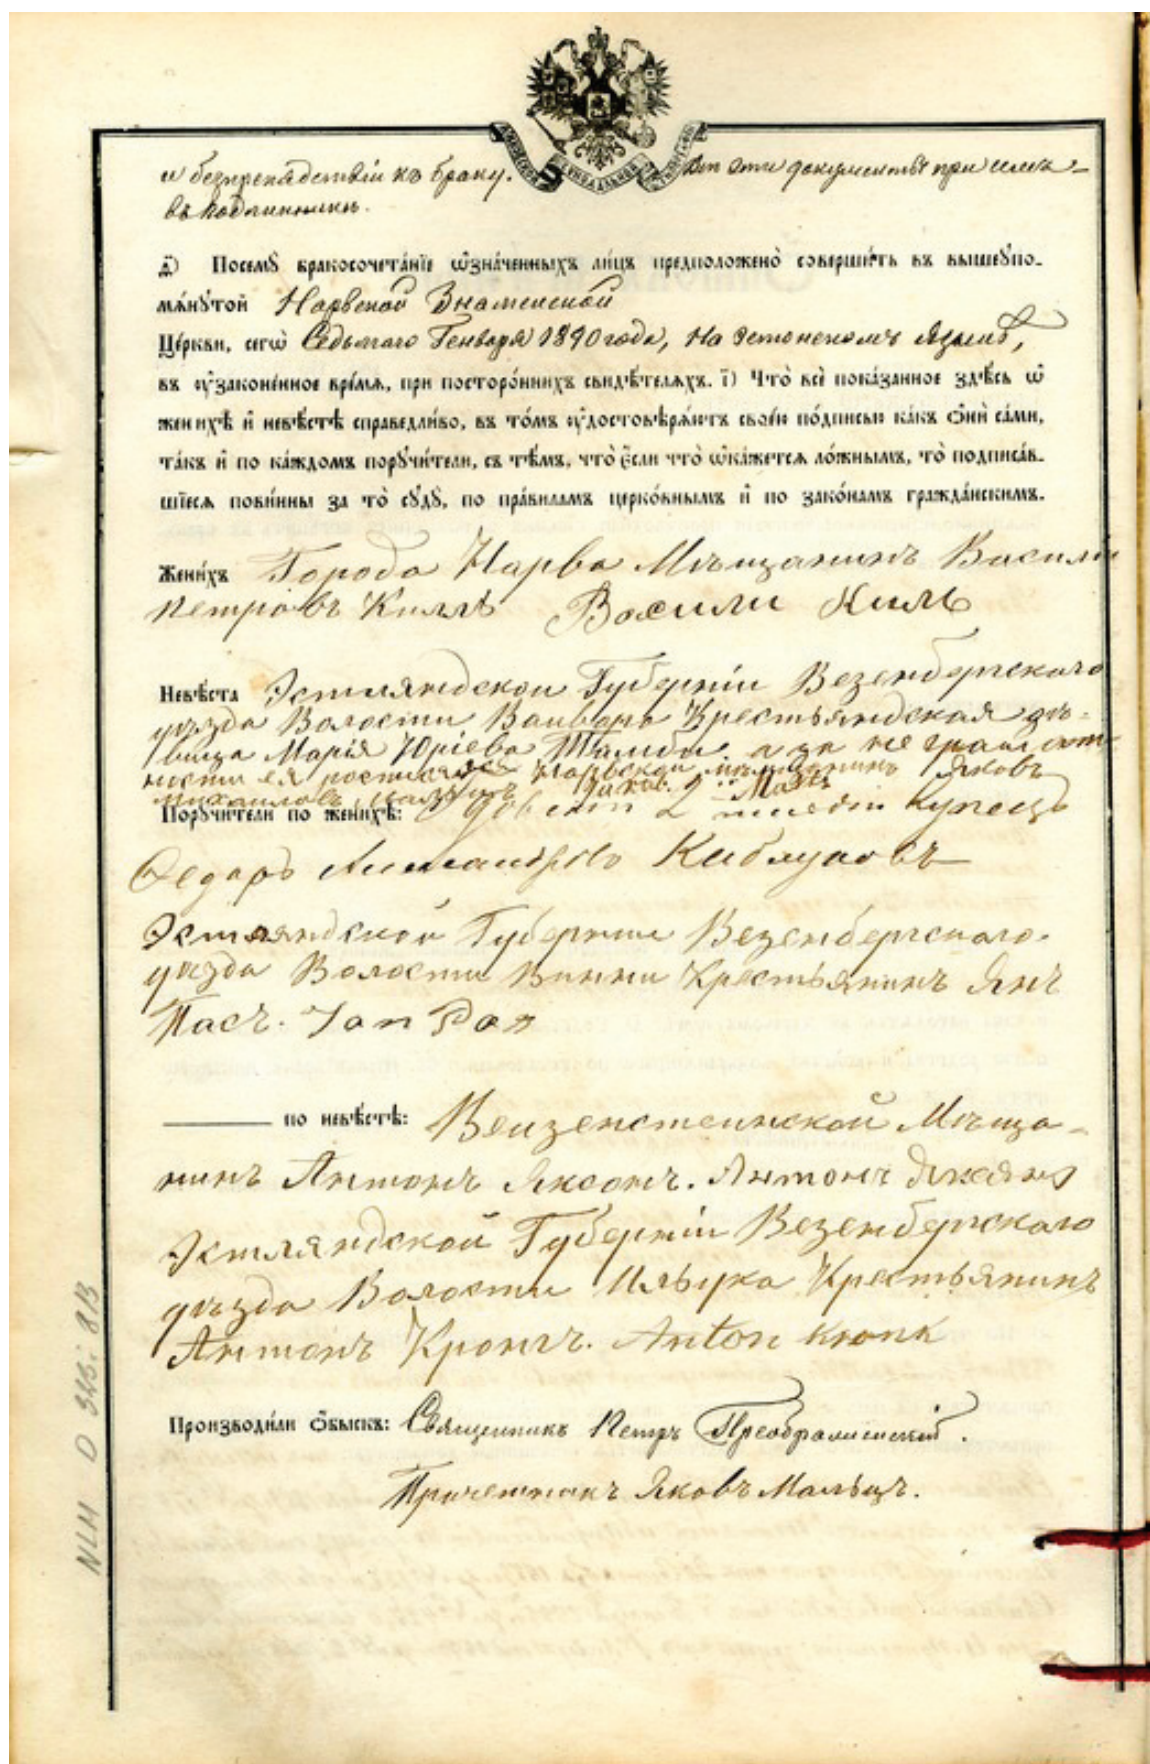 и безпрепядствіи къ браку. Всѣ эти документы при семъ
въ подлинникѣ.
Посемꙋ̀ бракосочета́нїе ѡ҆зна́ченныхъ ли́цъ предположено̀ соверши́ть въ вышеꙋпо-
мѧ́нꙋтой Нарвской Знаменской
Це́ркви, сегѡ̀ Седьмаго Генваря 1890 года, на Эстонскомъ языкѣ,
въ ᲂу҆зако́ненное вре́мѧ, при посторо́ннихъ свидѣ́телѧхъ. і҃) Что̀ всѐ пока́занное здѣ́сь ѡ҆
женихѣ̀ и҆ невѣ́стѣ справедли́во, въ то́мъ ᲂу҆достовѣрѧ́ютъ свое́ю по́дписью ка́къ ѻ҆нѝ са́ми,
та́къ и҆ по ка́ждомъ порꙋчи́тели, съ тѣ́мъ, что̀ є҆́сли что̀ ѡ҆ка́жетсѧ ло́жнымъ, то̀ подписа́в-
шїесѧ пови́нны за то̀ сꙋдꙋ̀, по пра́виламъ церко́внымъ и҆ по зако́намъ гражда́нскимъ.
Жени́хъ Города Нарва Мѣщанинъ Васили
Петровъ Килль Васили Киль
Невѣ́ста Эстляндской Губерніи Везенбергского
уѣзда Волости Вайвара Крестьяндская дѣ-
вица Марія Юріева Тамби, а за не грамот
ности ея росписался Нарвской мѣщанинъ Яковъ
Михаиловъ
Порꙋчи́тели по женихѣ̀: 2 Купецъ
Ѳедоръ
Эстляндской Губерніи Везенбергскаго
уѣзда Волости Винни Крестьянинъ Янъ
Пасъ. Jan Pas
—— по невѣ́стѣ: Веизенстеинской Мѣща-
нинъ Антонъ Яксонъ. Антонъ Яксонъ
Эстляндской Губерніи Везенбергскаго
уѣзда Волости Ильука Крестьянинъ
Антонъ Кронкъ. Anton Kronk
Производи́ли ѻ҆́быскъ: Священникъ Петръ Преображенскій.
Причетникъ Яковъ Мальцъ.
NLM D 323: 813